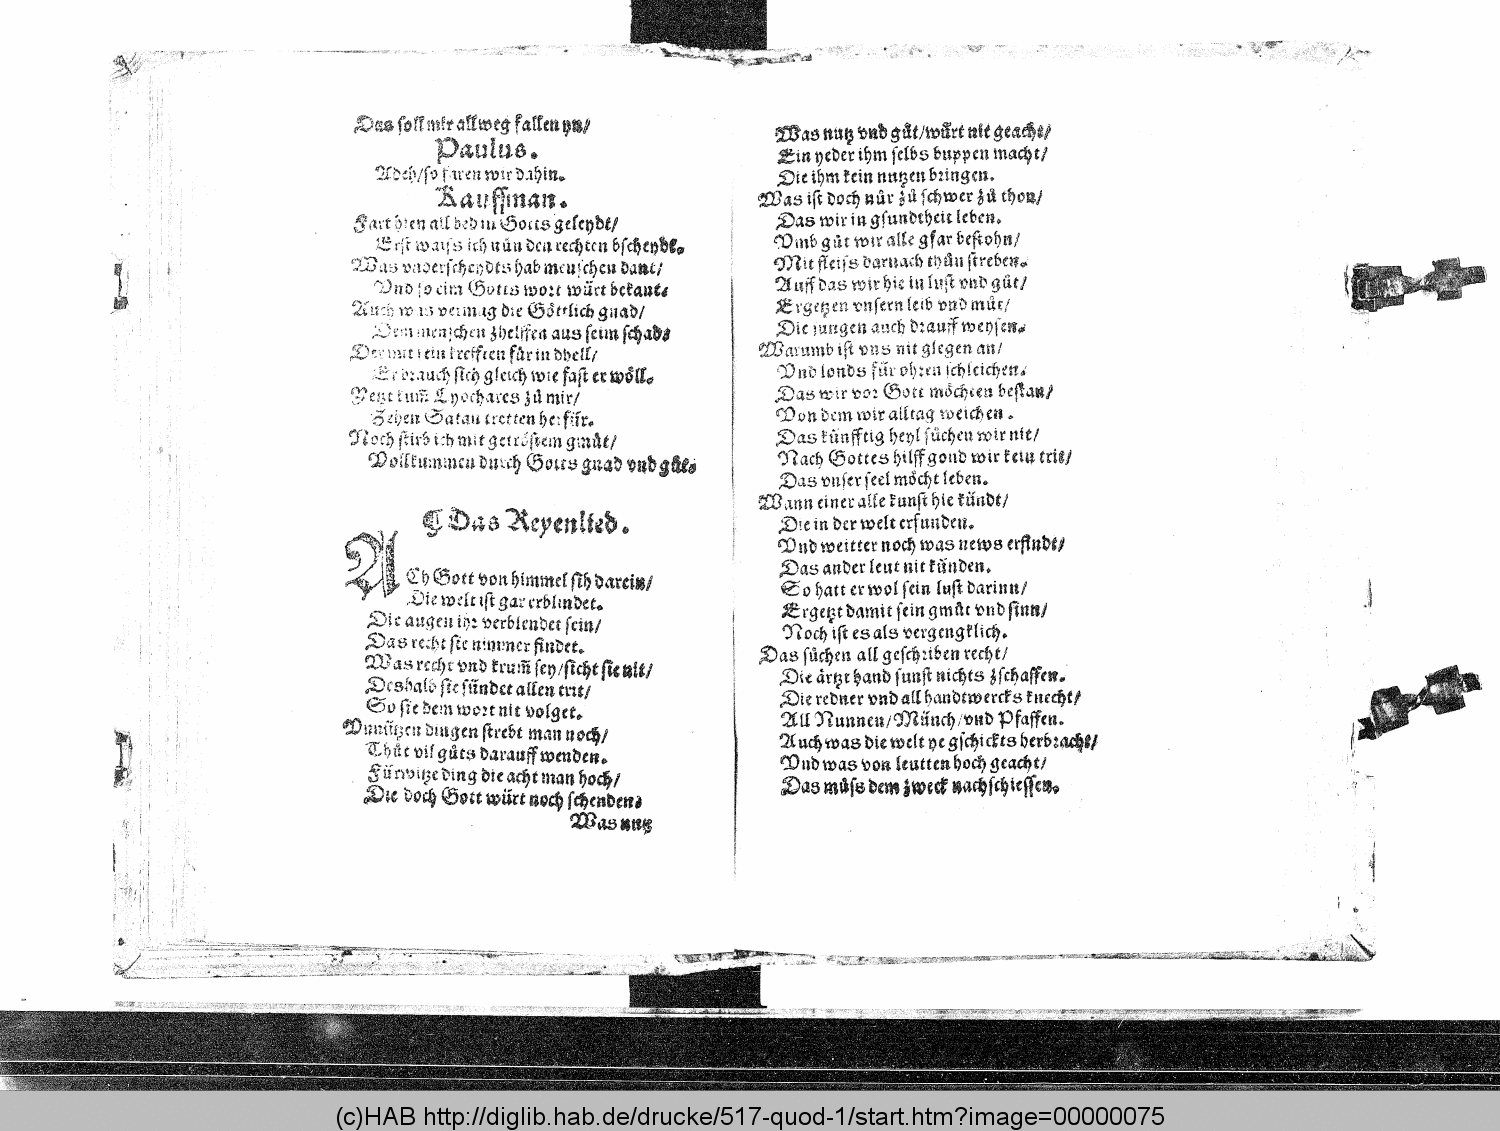 Das soll mir allweg fallen yn/
Paulus.
Adeh/so faren wir dahin.
Kauffman.
Fart hien all bed in Gotts geleydt/
Erst wayss ich nůn den rechten bscheydt.
Was underscheydts hab menschen dant/
Vnd so eim Gotts wort würt bekant.
Auch was vermag die Göttlich gnad/
Dem menschen zhelffen aus seim schad.
Der mit rein treffren für in dhell/
Er brauch sich gleich wie fast er wöll.
Yetzt kum̃ Lyochares zů mir/
Zehen Satan tretten herfür.
Noch stirb ich mit getröstem gmůt/
Vollkummen durch Gotts gnad vnd gůt.
¶ Das Reyenlied.
ACh Gott von himmel sih darein/
Die welt ist gar erblindet.
Die augen ihr verblendet sein/
Das recht sie nimmer findet.
Was recht vnd krum̃ sey/sicht sie nit/
Deshalb sie sündet allen trit/
So sie dem wort nit volget.
Vnnützen dingen strebt man noch/
Thůt vil gůts darauff wenden.
Fürwitze ding die acht man hoch/
Die doch Gott würt noch schenden.
Was nutz
Was nutz vnd gůt/würt nit geacht/
Ein yeder ihm selbs buppen macht/
Die ihm kein nutzen bringen.
Was ist doch nůr zů schwer zů thon/
Das wir in gsundtheit leben.
Vmb gůt wir alle gfar bestohn/
Mit fleiss darnach thůn streben.
Auff das wir hie in lust vnd gůt/
Ergetzen vnsern leib vnd můt/
Die jungen auch drauff weysen.
Warumb ist vns nit glegen an/
Vnd londs für ohren schleichen.
Das wir vor Gott möchten bestan/
Von dem wir alltag weichen.
Das künfftig heyl sůchen wir nit/
Nach Gottes hilff gond wir kein trit/
Das vnser seel möcht leben.
Wann einer alle kunst hie kündt/
Die in der welt erfunden.
Vnd weitter noch was news erfindt/
Das ander leut nit künden.
So hatt er wol sein lust darinn/
Ergetzt damit sein gmůt vnd sinn/
Noch ist es als vergengklich.
Das sůchen all geschriben recht/
Die ärtzt hand sunst nichts zschaffen.
Die redner vnd all handtwercks knecht/
All Nunnen/Münch/vnd Pfaffen.
Auch was die welt ye gschickts herbracht/
Vnd was von leutten hoch geacht/
Das můss dem zweck nachschiessen.
(c)HAB http://diglib.hab.de/drucke/517-quod-1/start.htm?image=00000075